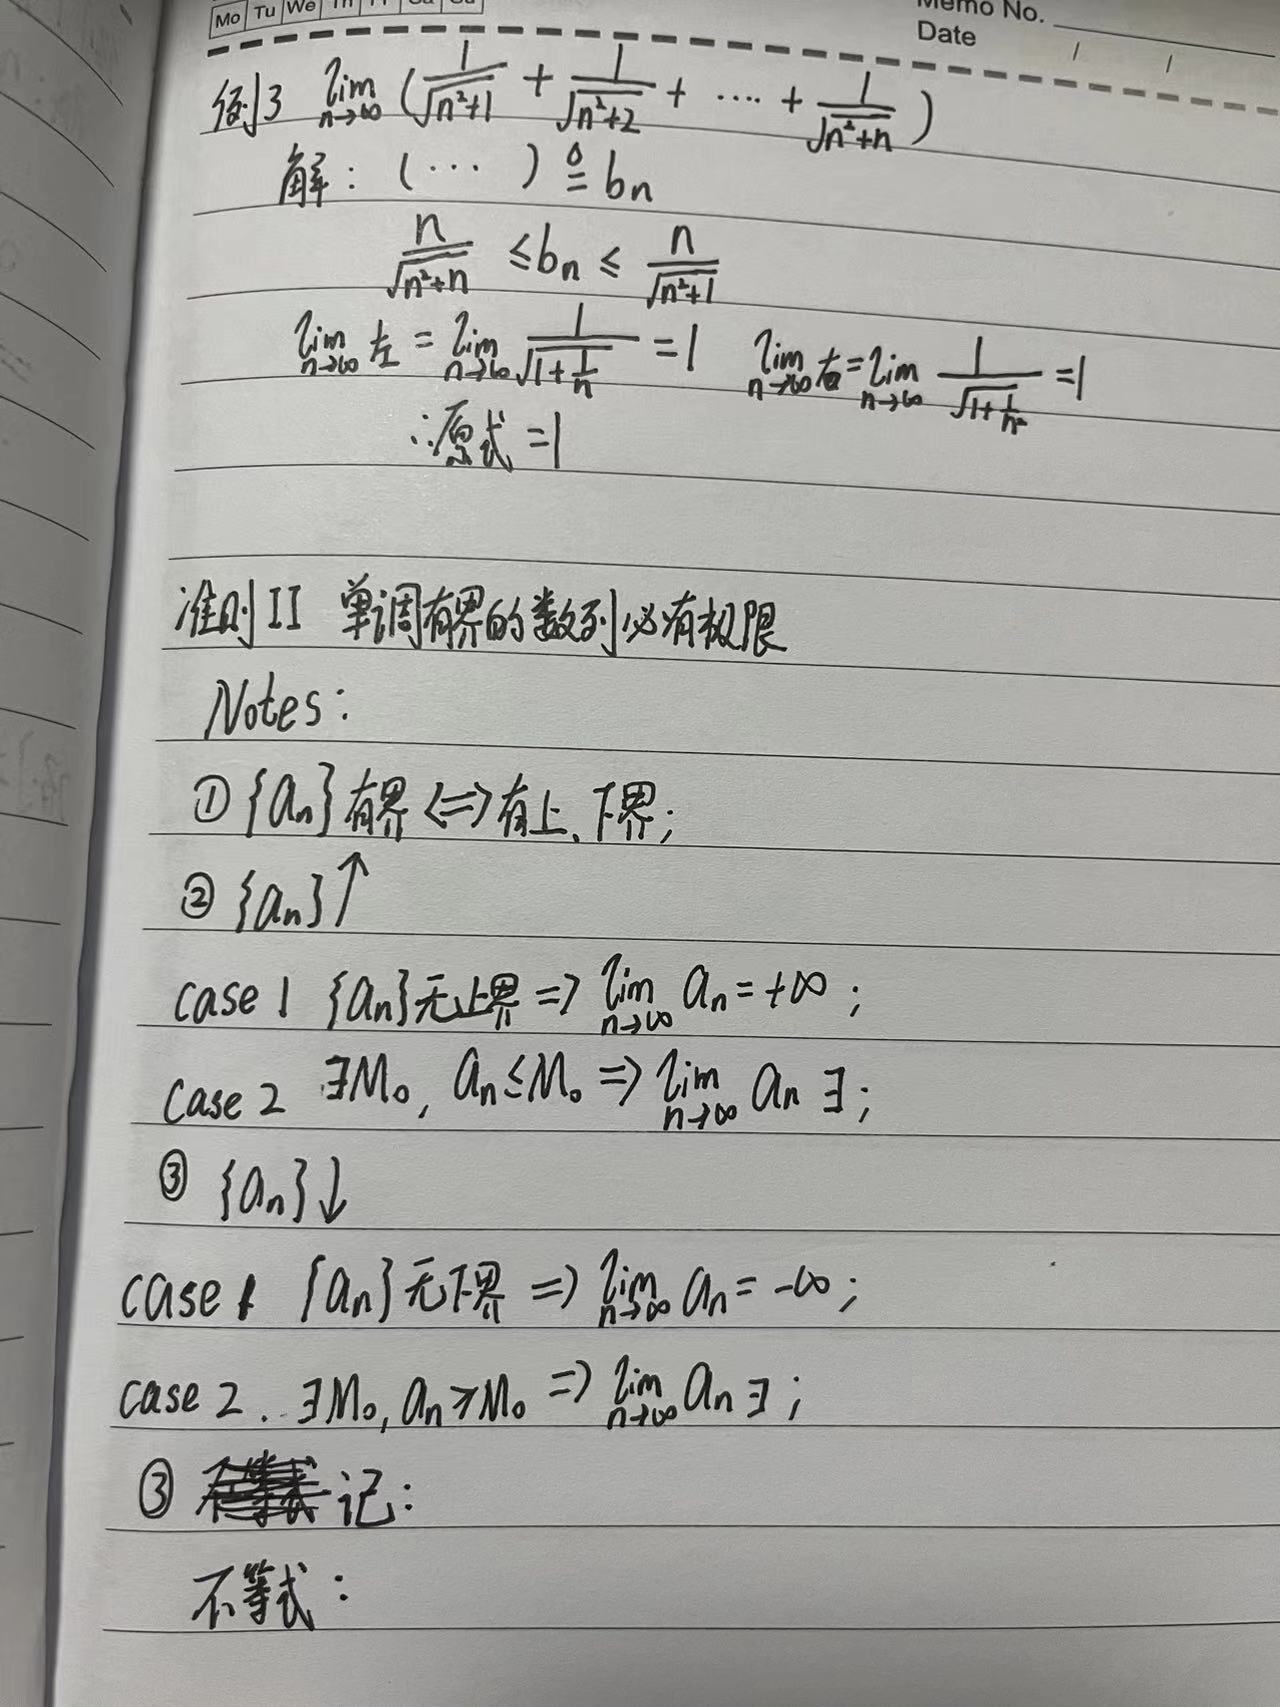 Mo Tu We Th Fr Sa Su
Memo No.
Date / /
例3 lim n→∞ (1/√(n²+1) + 1/√(n²+2) + ···· + 1/√(n²+n))
解: (··· ) ≙ bn
n/√(n²+n) ≤ bn ≤ n/√(n²+1)
lim n→∞ 左 = lim n→∞ 1/√(1+1/n) = 1 lim n→∞ 右 = lim n→∞ 1/√(1+1/n²) = 1
∴原式 = 1
准则II 单调有界的数列必有极限
Notes:
① {an}有界 <=> 有上、下界;
② {an}↑
case 1 {an}无上界 => lim n→∞ an = +∞ ;
case 2 ∃M₀, an ≤ M₀ => lim n→∞ an ∃ ;
③ {an}↓
case 1 {an}无下界 => lim n→∞ an = -∞ ;
case 2. ∃M₀, an ≥ M₀ => lim n→∞ an ∃ ;
③ 记:
不等式: